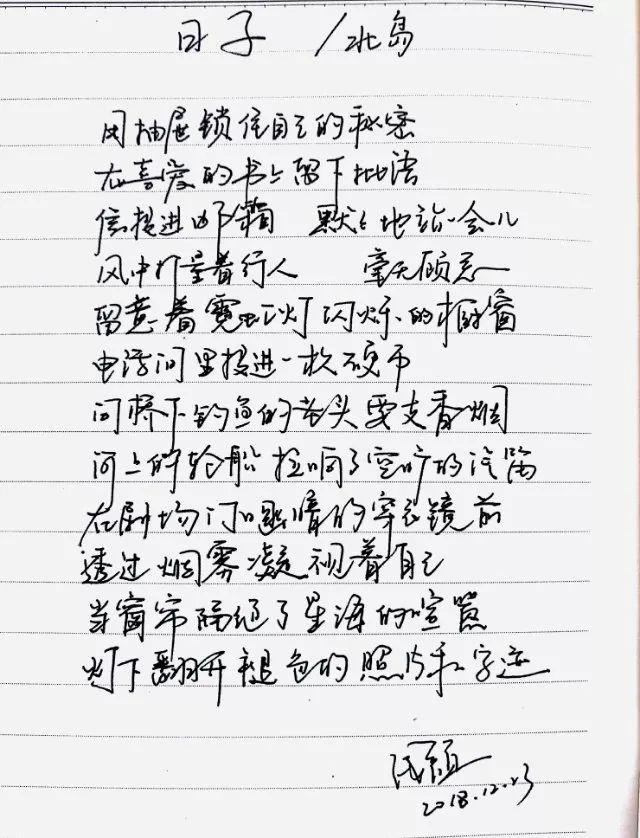 日子 /北岛
用抽屉锁住自己的秘密
在喜爱的书上留下批语
信投进邮箱 默默地站一会儿
风中打量着行人 毫无顾忌
留意着霓虹灯闪烁的橱窗
电话间里投进一枚硬币
问桥下钓鱼的老头要支香烟
河上的轮船拉响了空旷的汽笛
在剧场门口幽暗的穿衣镜前
透过烟雾凝视着自己
当窗帘隔绝了星海的喧嚣
灯下翻开褪色的照片和字迹
2018.12.23